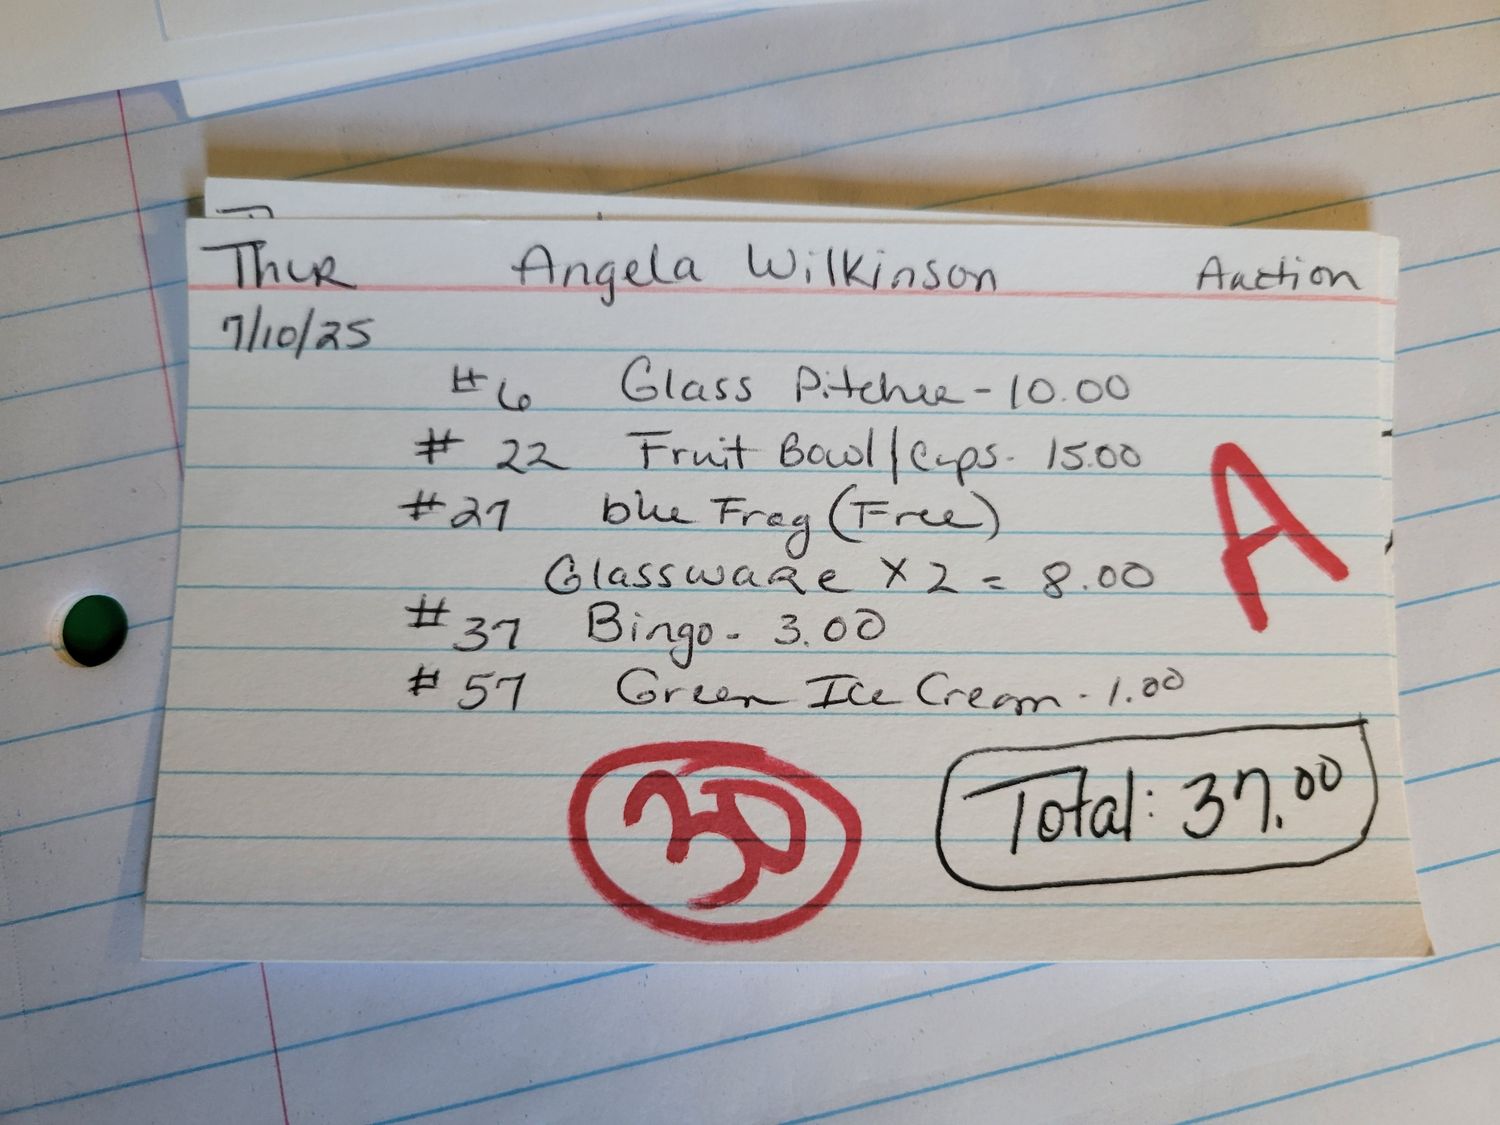 Thur Angela Wilkinson Auction
7/10/25
#6 Glass Pitcher - 10.00
# 22 Fruit Bowl/Cups - 15.00
#27 blue Frog (Free)
Glassware x 2 = 8.00
#37 Bingo - 3.00
#57 Green Ice Cream - 1.00
A
30
Total: 37.00